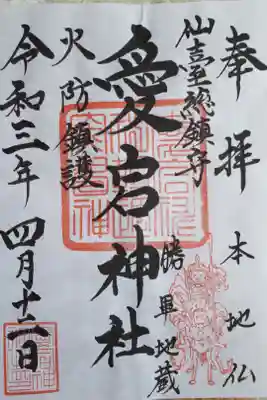 奉拝
本地仏
勝軍地蔵
仙臺総鎮守
愛宕神社
火防鎮護
令和三年四月十二日